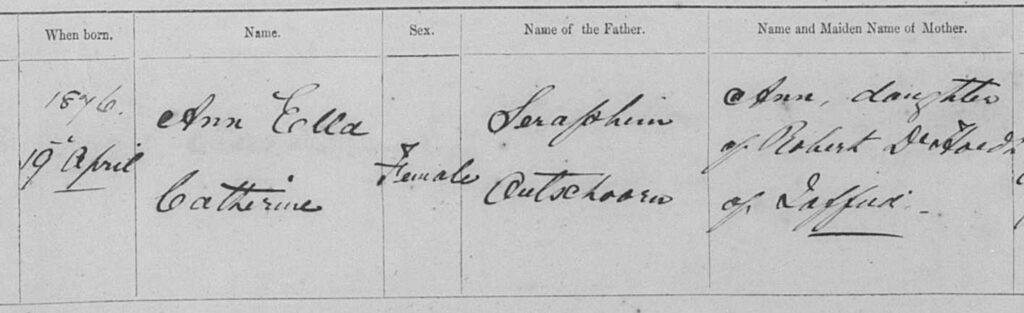 When born.
Name.
Sex.
Name of the Father.
Name and Maiden Name of Mother.
1876.
19 April
Ann Ella
Catherine
Female
Seraphim
Outschoorn
Ann, daughter
of Robert
of